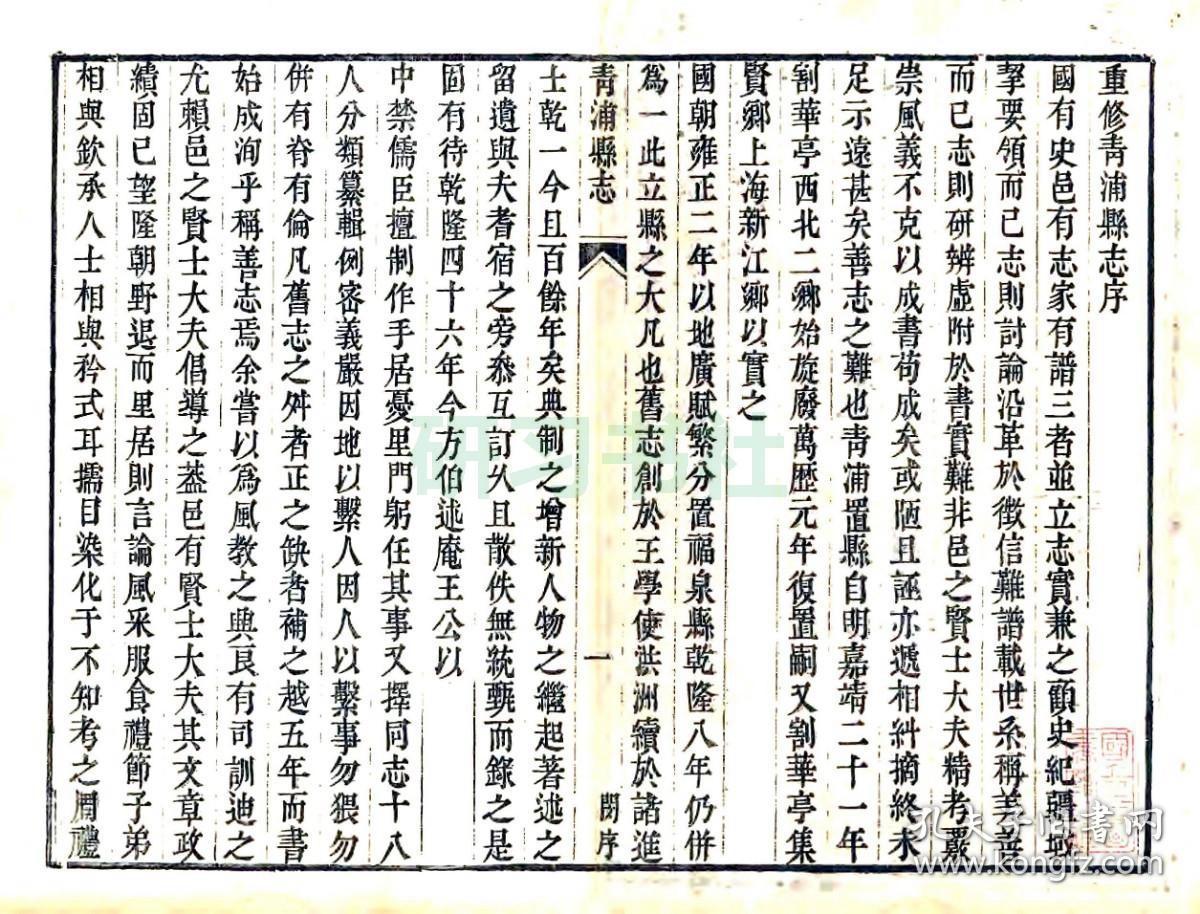 重修青浦縣志序
國有史邑有志家有譜三者並立志實兼之顧史紀疆域
挈要領而已志則討論沿革於徵信難譜載世系稱美善
而已志則研辨虛附於書實難非邑之賢士大夫精考覈
崇風義不克以成書苟成矣或陋且誣亦遞相糾摘終未
足示遠甚矣善志之難也青浦置縣自明嘉靖二十一年
割華亭西北二鄉始旋廢萬歷元年復置嗣又割華亭集
賢鄉上海新江鄉以實之
國朝雍正二年以地廣賦繁分置福泉縣乾隆八年仍併
為一此立縣之大凡也舊志創於王學使洪洲續於諸進
青浦縣志
一
閔序
士乾一今且百餘年矣典制之增新人物之繼起著述之
留遺與夫耆宿之旁叅互訂久且散佚無統甄而錄之是
固有待乾隆四十六年今方伯述庵王公以
中禁儒臣擅制作手居憂里門躬任其事又擇同志十八
人分類纂輯例密義嚴因地以繫人因人以繫事勿猥勿
併有脊有倫凡舊志之舛者正之缺者補之越五年而書
始成洵乎稱善志焉余嘗以為風教之興良有司訓迪之
尤賴邑之賢士大夫倡導之蓋邑有賢士大夫其文章政
績固已望隆朝野退而里居則言論風采服食禮節子弟
相與欽承人士相與矜式耳擩目染化于不知考之周禮
研习书社
孔夫子旧书网
www.kongfz.com